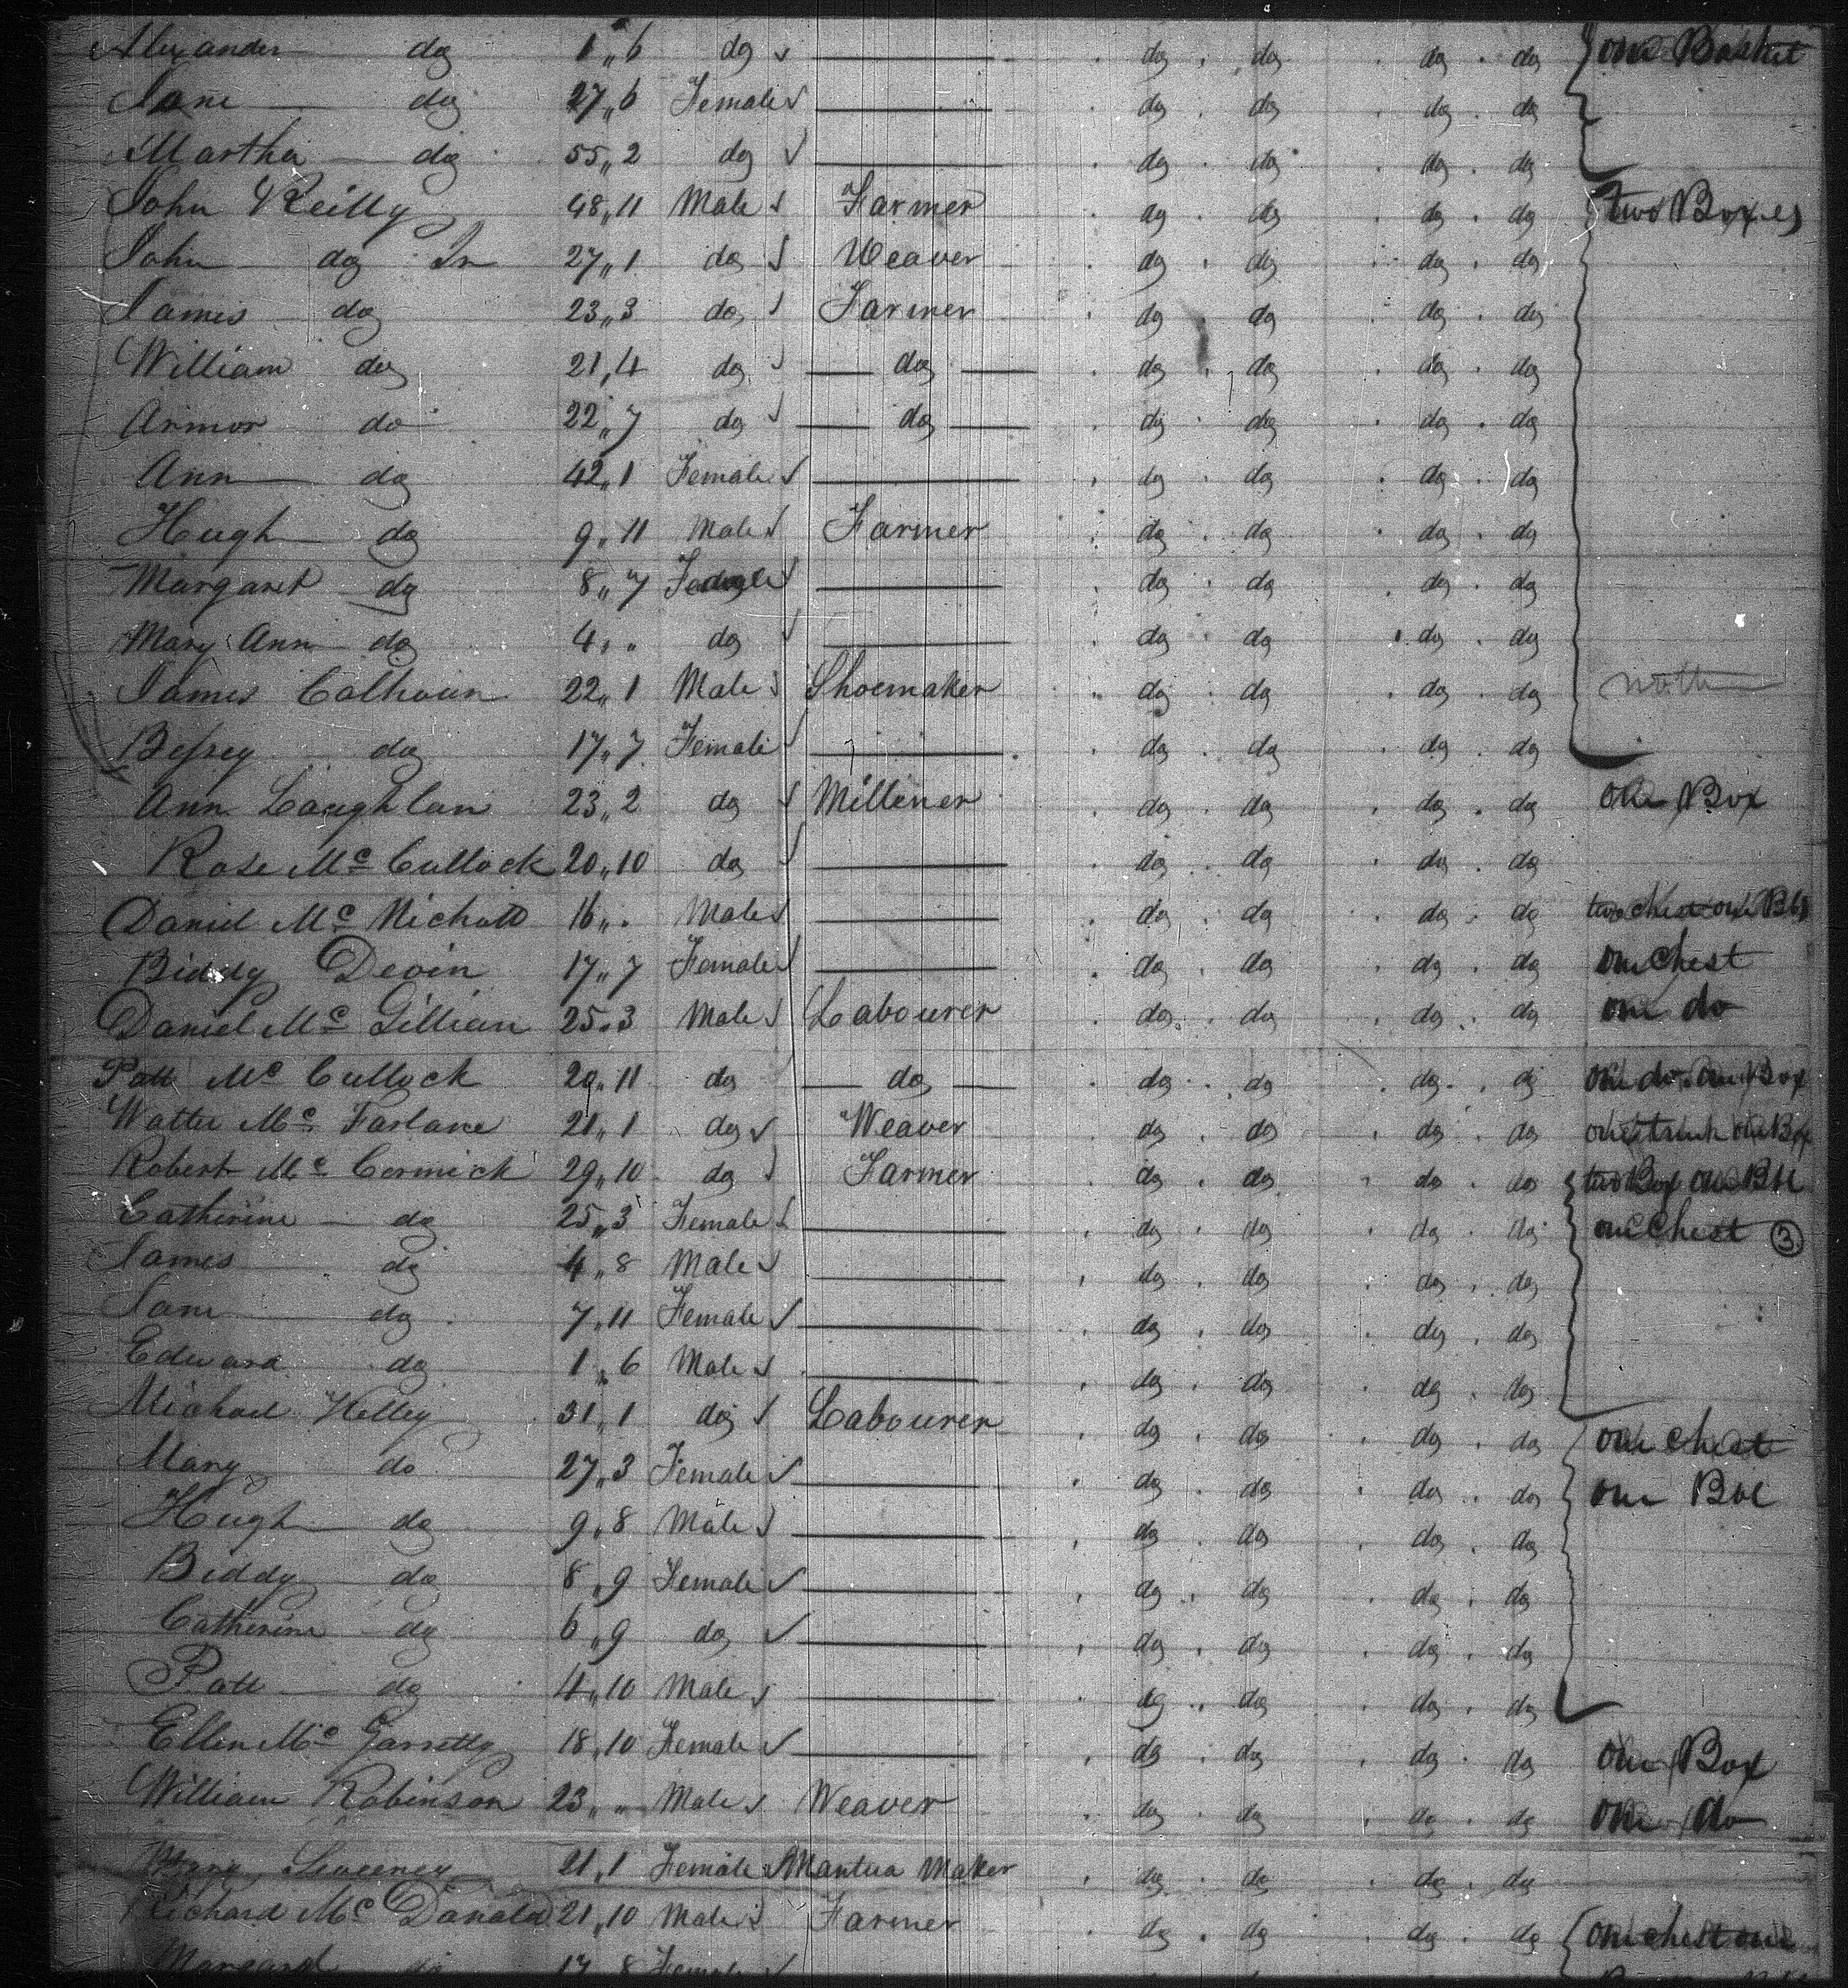 Alexander do 1,,6 do do do do do one Basket
Jane do 27,,6 Female do do do do
Martha do 55,,2 do do do do do
John Reilly 48,,11 Male Farmer do do do do two Boxes
John do Jnr 27,,1 do Weaver do do do do
James do 23,,3 do Farmer do do do do
William do 21,,4 do do do do do do
Armor do 22,,7 do do do do do do
Ann do 42,,1 Female do do do do
Hugh do 9,,11 Male Farmer do do do do
Margaret do 8,,7 Female do do do do
Mary Ann do 4,,,, do do do do do
James Calhoun 22,,1 Male Shoemaker do do do do
Bessey do 17,,7 Female do do do do
Ann Laughlan 23,,2 do Milliner do do do do one Box
Rose Mc Cullock 20,,10 do do do do do
Daniel Mc Nicholl 16,,. Male do do do do two chest one Bbl
Biddy Devin 17,,7 Female do do do do one Chest
Daniel Mc Gillian 25,,3 Male Labourer do do do do one do
Patt Mc Cullock 20,,11 do do do do do do one do one Box
Walter Mc Farlane 21,,1 do Weaver do do do do one trunk one Box
Robert Mc Cormick 29,,10 do Farmer do do do do two Box one Bbl
Catherine do 25,,3 Female do do do do one Chest 3
James do 4,,8 Male do do do do
Jane do 7,,11 Female do do do do
Edward do 1,,6 Male do do do do
Michael Kelley 31,,1 do Labourer do do do do one chest
Mary do 27,,3 Female do do do do one Bbl
Hugh do 9,,8 Male do do do do
Biddy do 8,,9 Female do do do do
Catherine do 6,,9 do do do do do
Patt do 4,,10 Male do do do do
Ellen Mc Garretty 18,,10 Female do do do do one Box
William Robinson 23,,,, Male Weaver do do do do one do
Mary Sweeney 21,,1 Female Mantua Maker do do do do
Richard Mc Donald 21,,10 Male Farmer do do do do one chest one
Margaret do 17,,8 Female